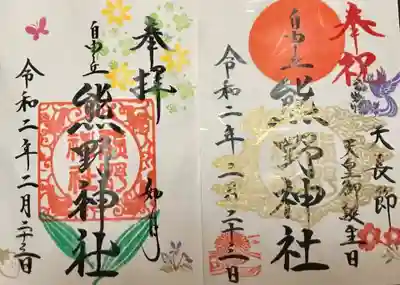 奉拝
如月
自由丘
熊野神社
令和二年二月二十三日
奉祝
天長節
天皇御誕生日
自由丘
熊野神社
令和二年二月二十三日